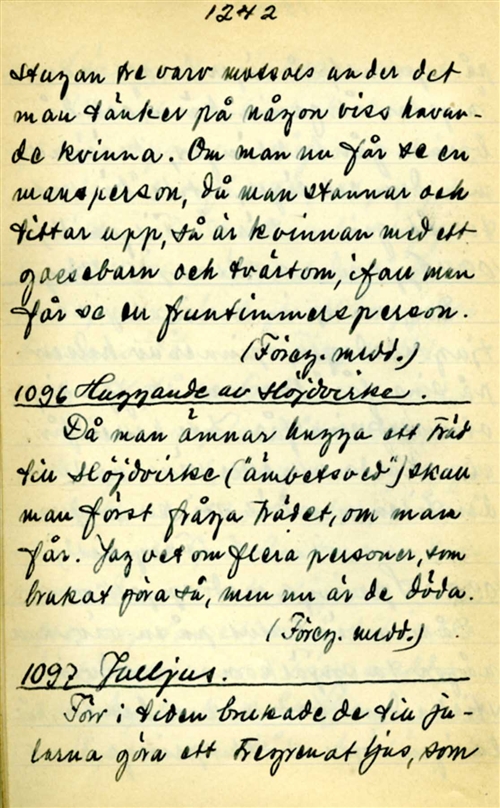 1242
stugan tre varv motsols under det
man tänker på någon viss havan-
de kvinna. Om man nu får se en
mansperson, då man stannar och
tittar upp, så är kvinnan med ett
gossebarn och tvärtom, ifall man
får se en fruntimmersperson.
(Föreg. medd.)
1096 Huggande av slöjdvirke.
Då man ämnar hugga ett träd
till slöjdvirke ("ämbetsved") skall
man först fråga trädet, om man
får. Jag vet om flera personer, som
brukat göra så, men nu är de döda.
(Föreg. medd.)
1097 Julljus.
Förr i tiden brukade de till ju-
larna göra ett tregrenat ljus, som